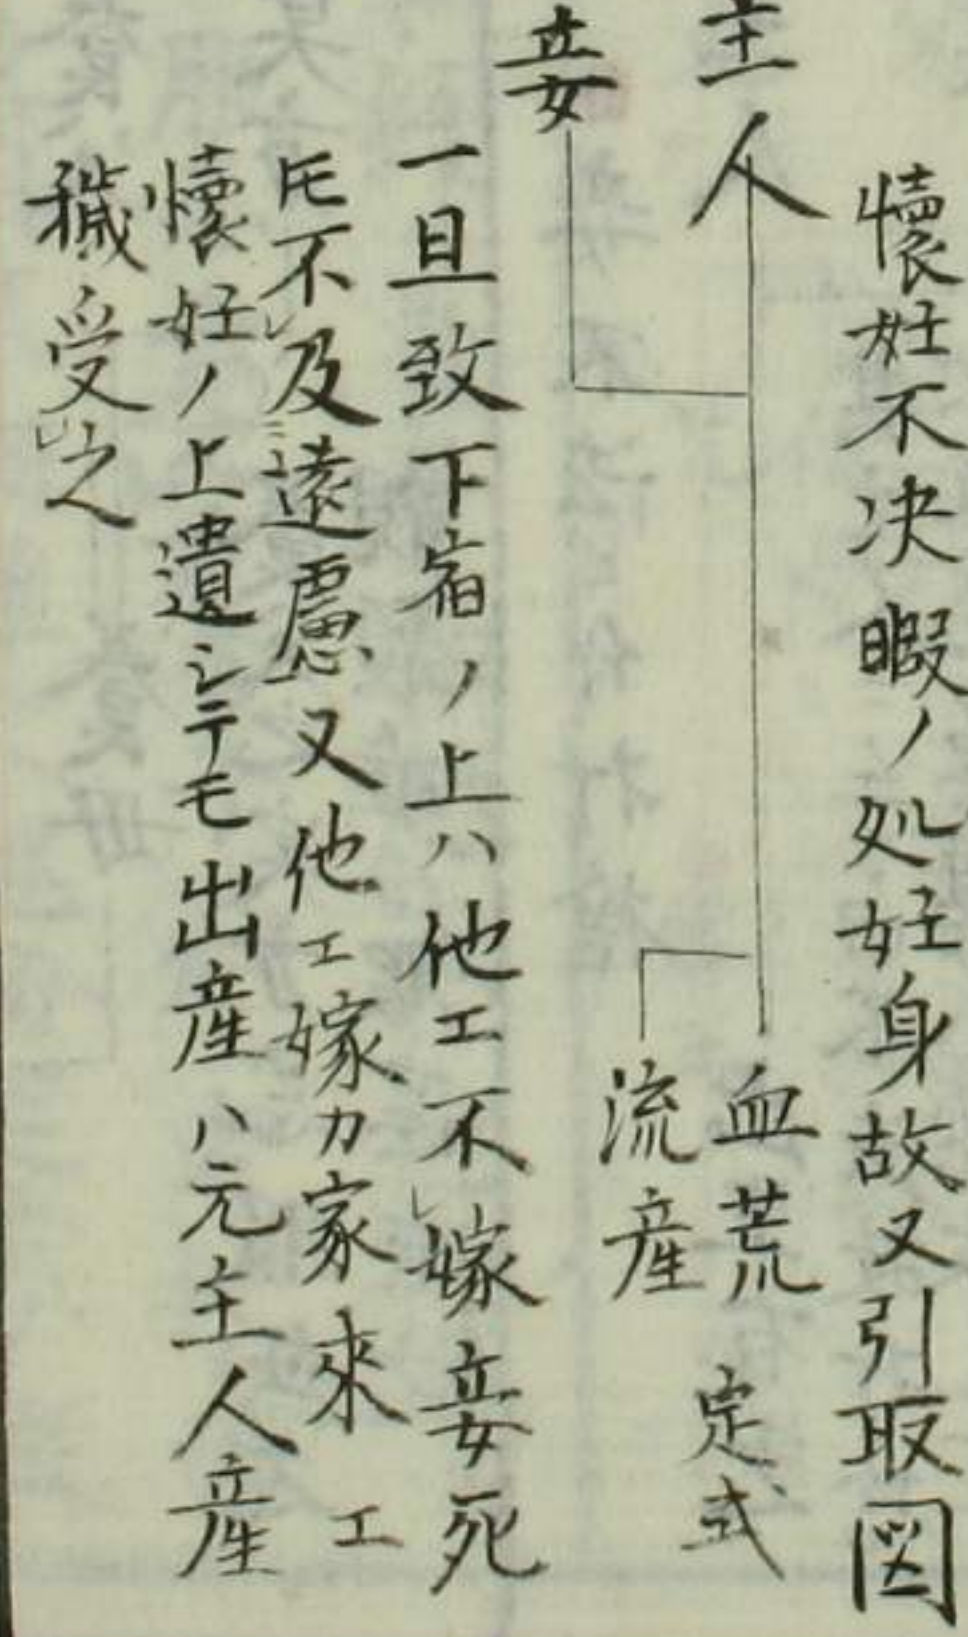 懐妊不決暇ノ処妊身故又引取図
主人
血荒
流産
定式
妾
一旦致下宿ノ上ハ他エ不レ嫁妾死
㆑不レ及二遠慮又他エ嫁カ家来エ
懐妊ノ上遣シテモ出産ハ元主人産
穢受レ之